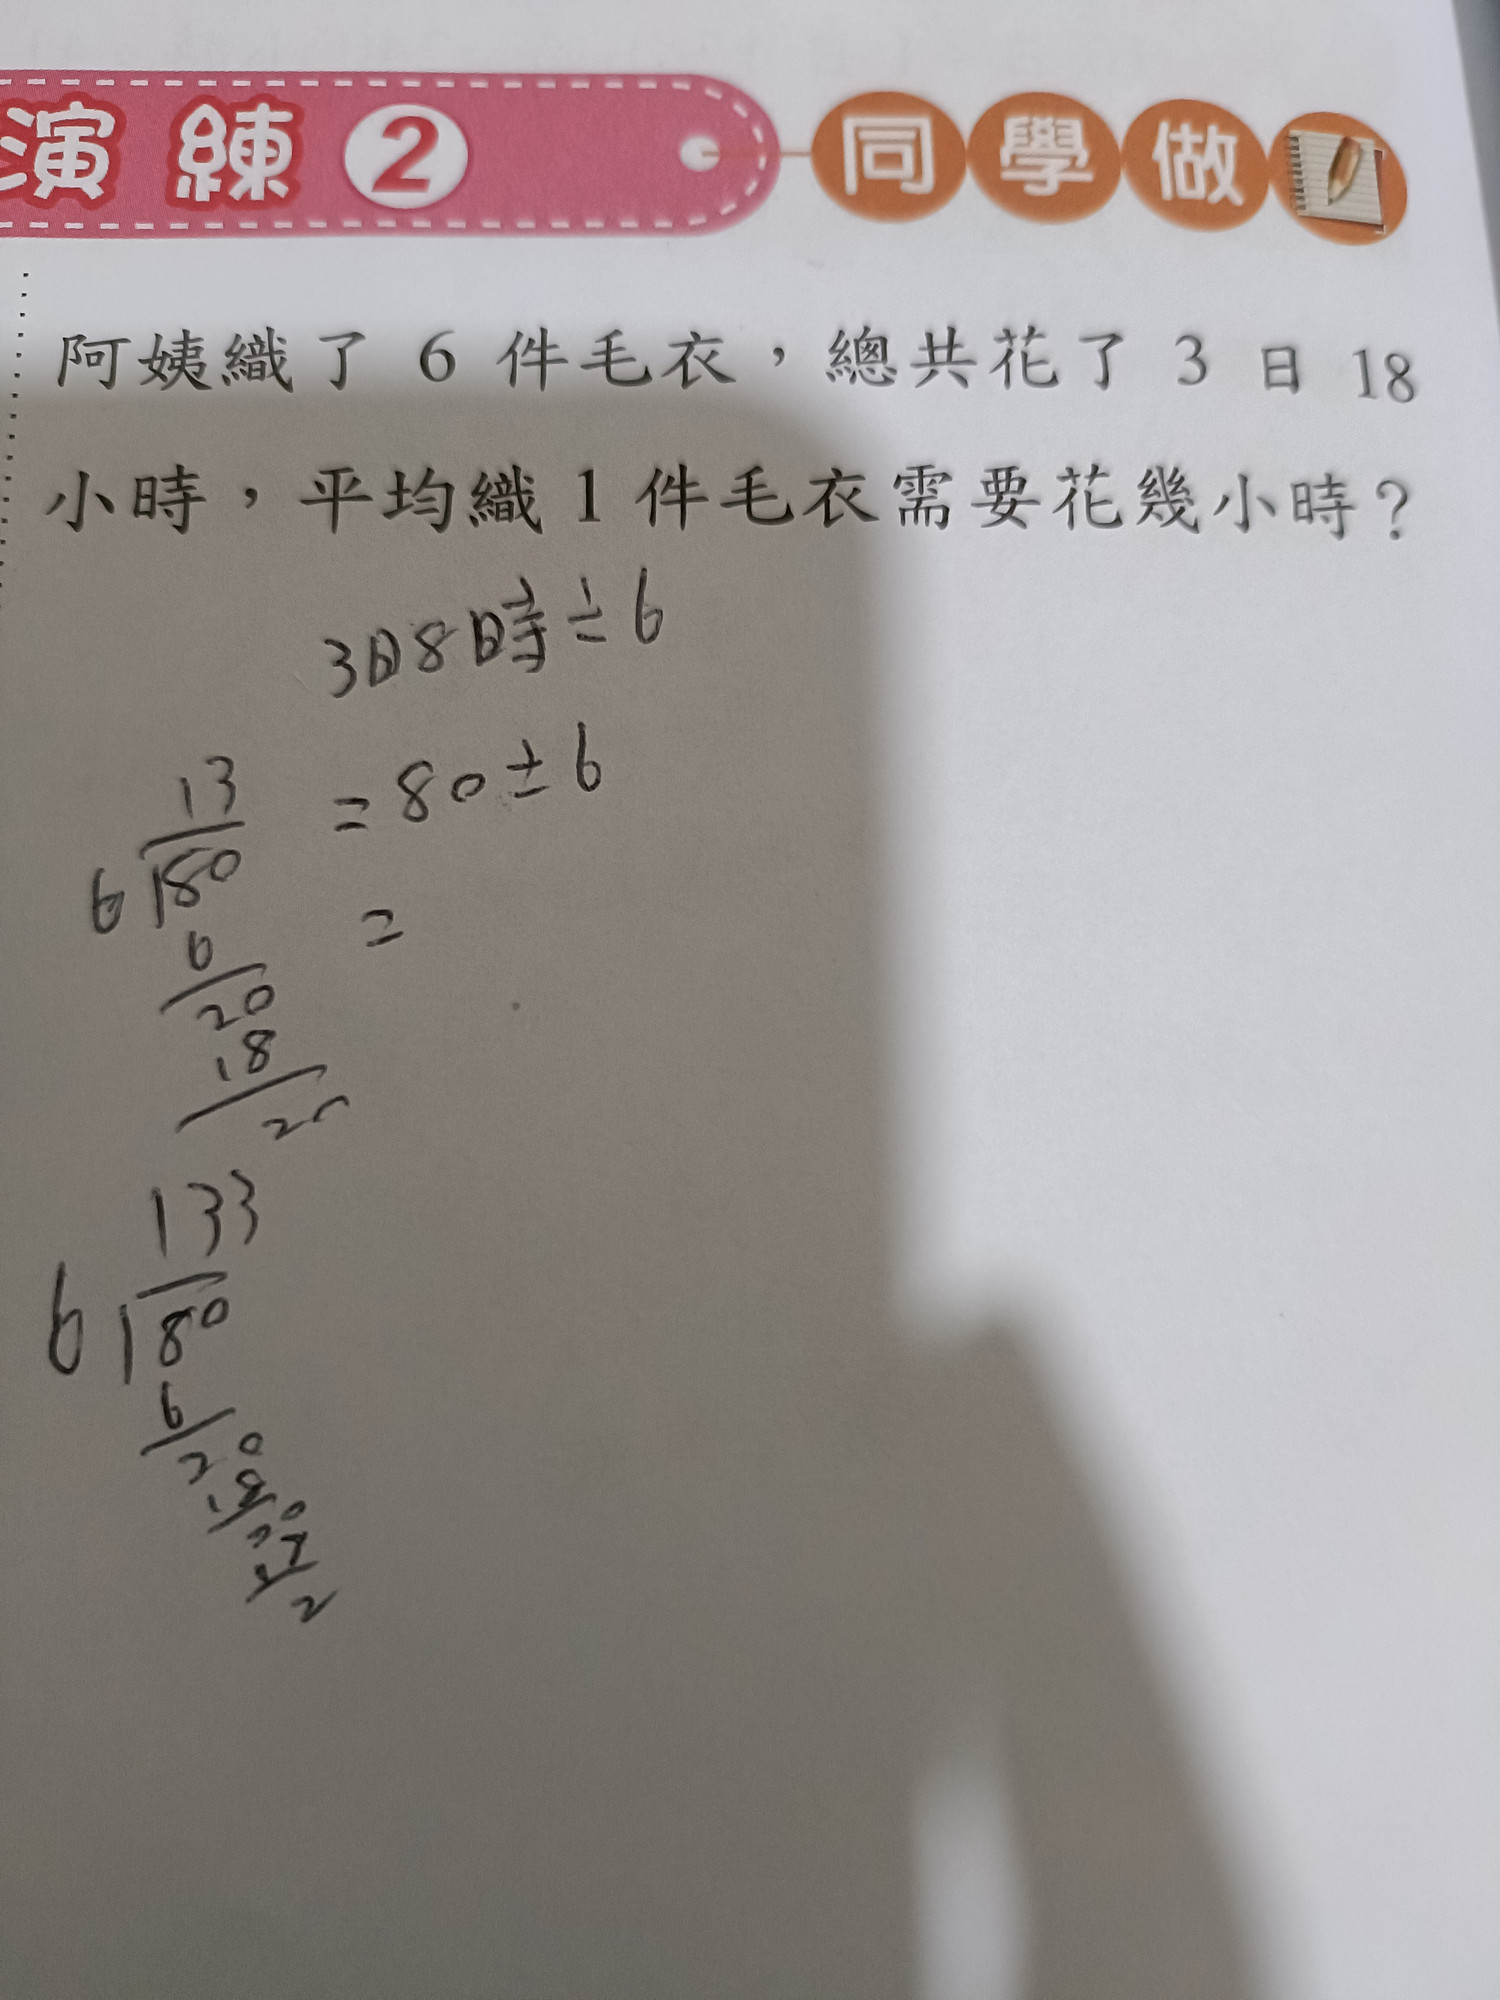 演練2 同學做
阿姨織了 6 件毛衣，總共花了 3 日 18
小時，平均織 1 件毛衣需要花幾小時？
3日8時÷6
=80÷6
=
13
6 80
6
20
18
2
133
6 80
6
20
18
20
18
2